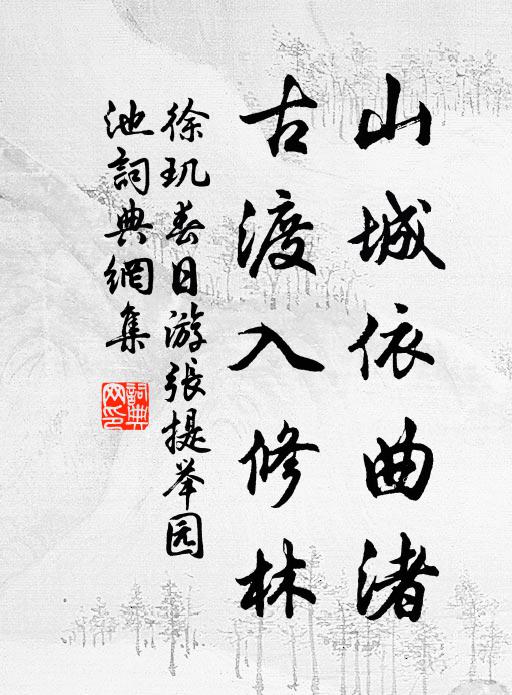 山城依曲渚
古渡入修林
徐玑春日游張提举园
池詞典網集
詞典
网印